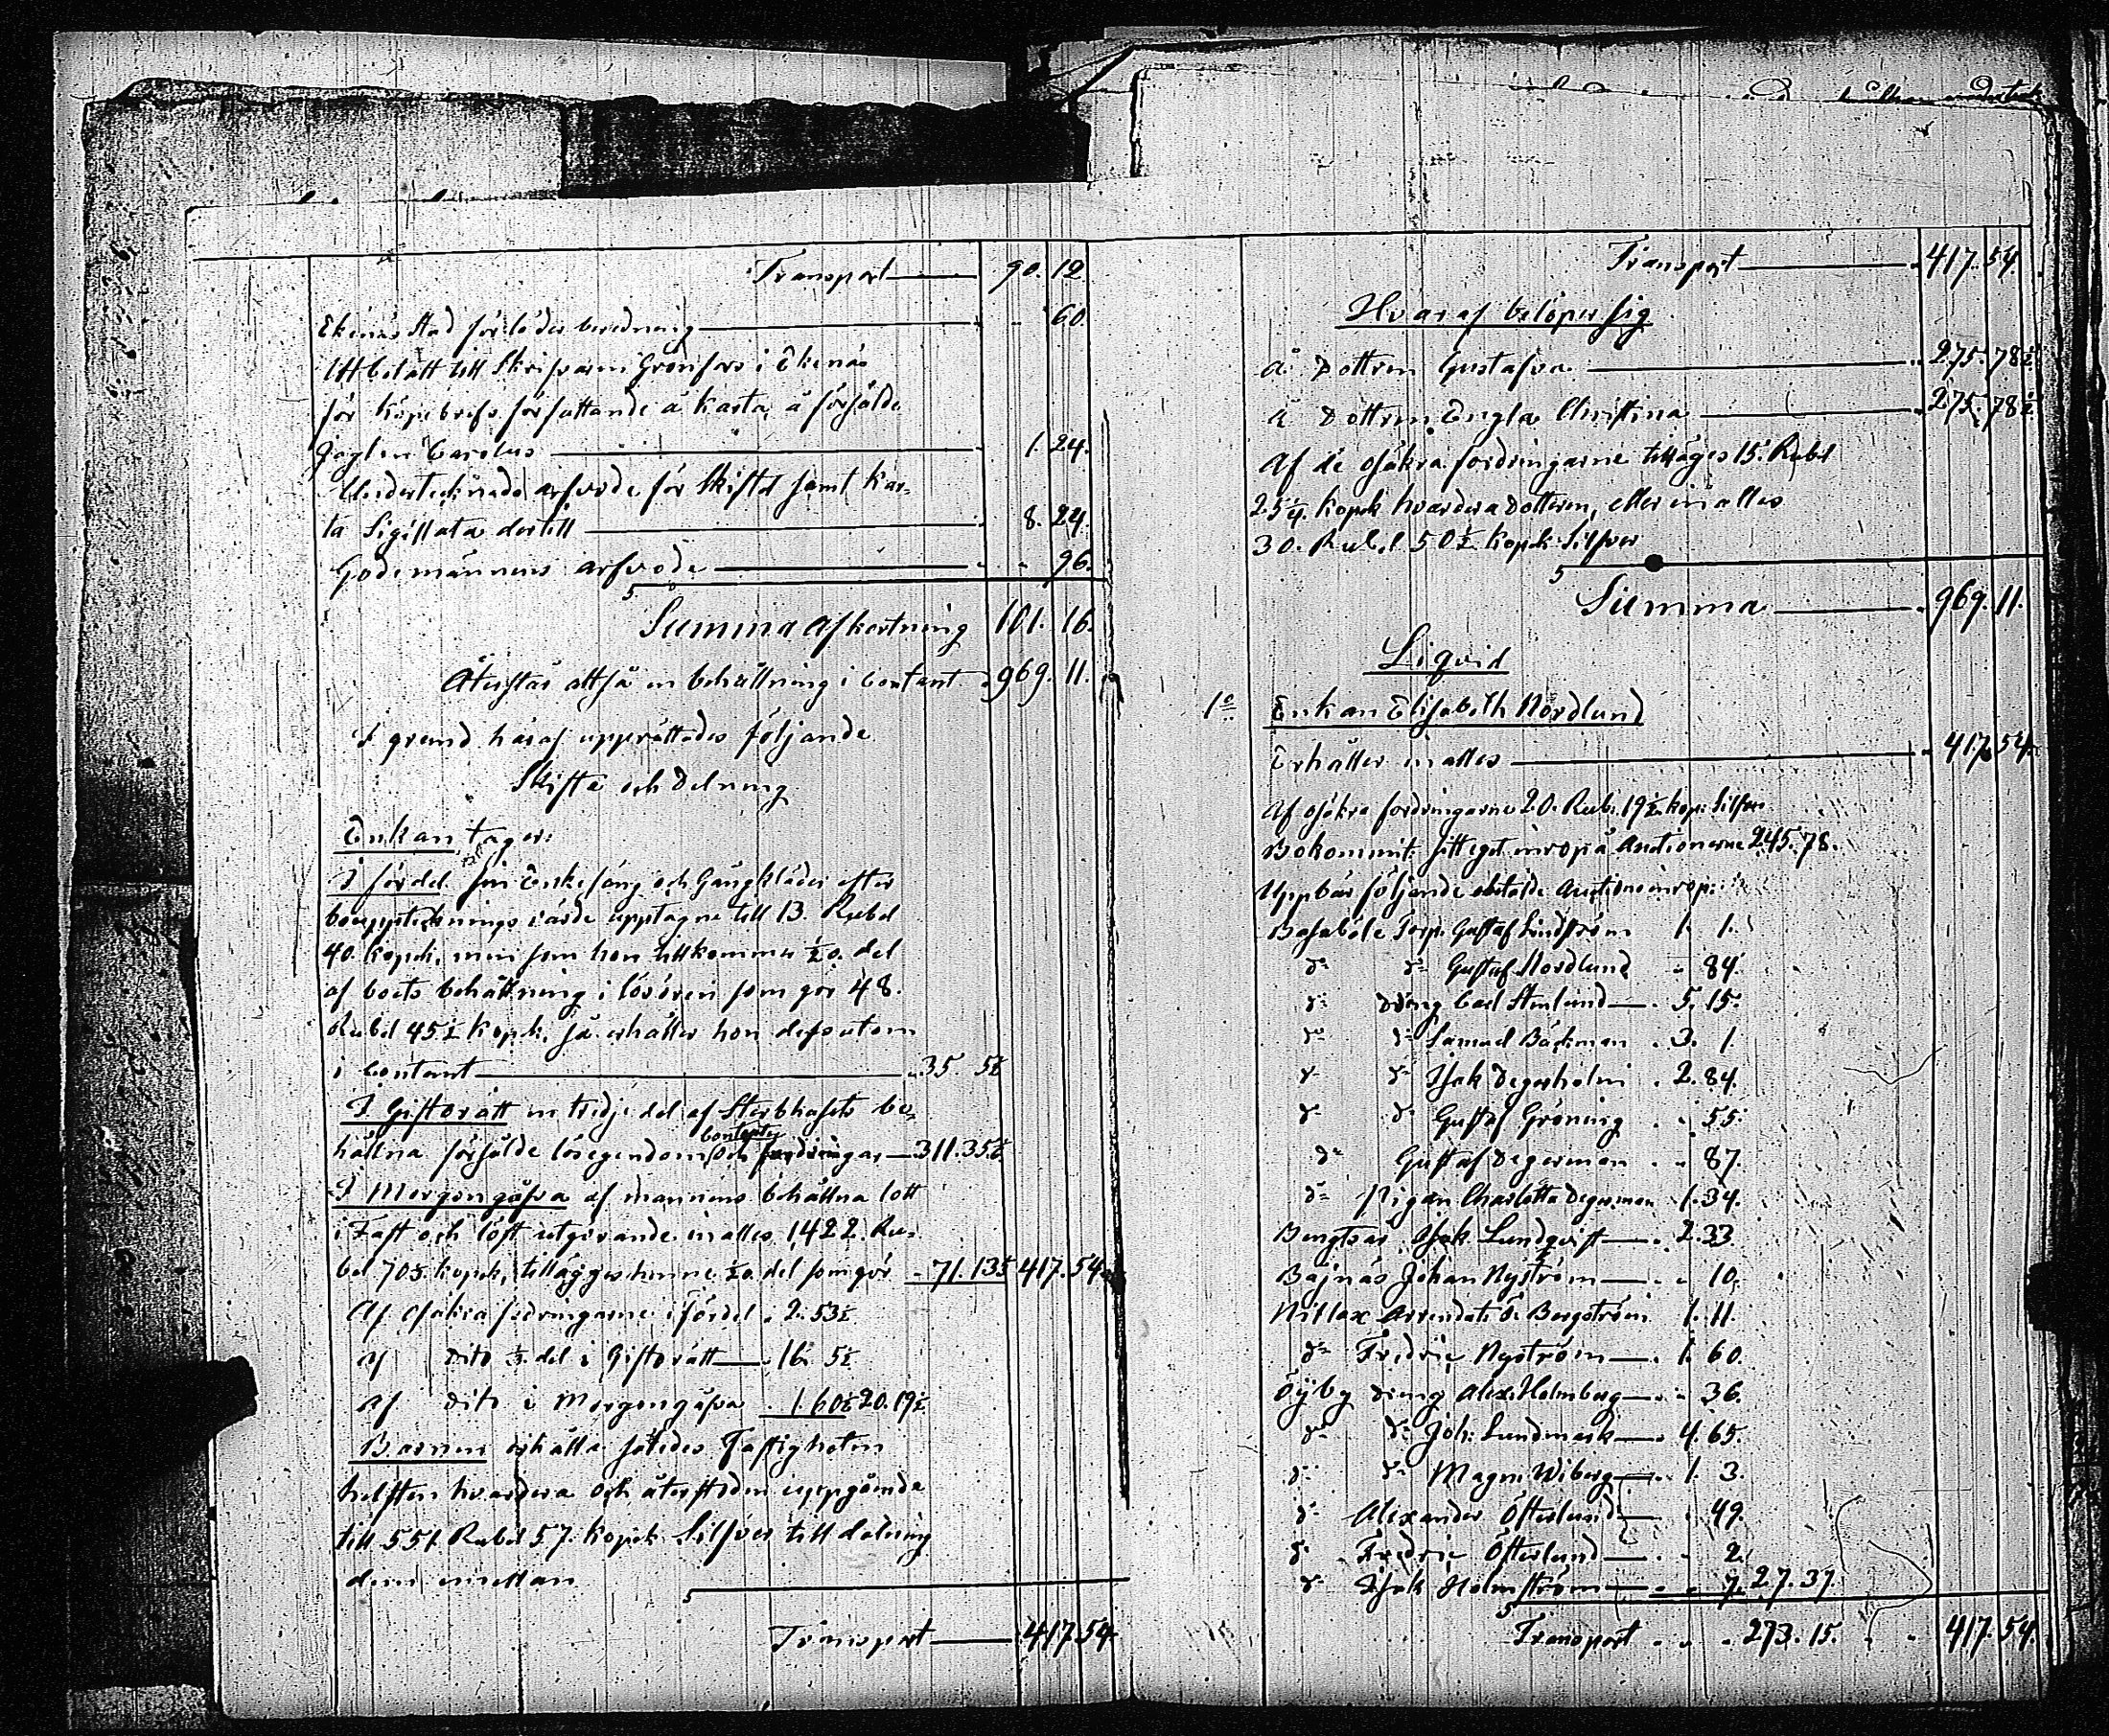 Transport 90. 12
Ekenäs Stad för löders beredning " 60.
Utbetalt till Skrifvaren Grönfors i Ekenäs
för Köpebrefs författande å Karta, å försålde
Jagten Carolus 1. 24.
Undertecknads arfvode för Skiftet samt Kar-
ta Sigillata dertill 8. 24.
Godemännens arfvode " 96.
Summa Afkortning 101. 16.
Återstår altså en behållning i Contant 969. 11.
I grund häraf upprättades följande
Skifte och Delning
Enkan tager:
I fördel sin Enkesäng och Gångkläder efter
bouppteknings värde upptagne till 13. Rubel
40. Kopek, men som hon tillkommer 1/20. del
af boets behållning i lösören som gör 48.
Rubel 45½ Kopek, så erhåller hon dessutom
i Contant 35. 5½
I Giftorätt en tredje del af Sterbhusets be-
hållna försålde lösegendom och Contanter fordringar 311. 35½.
I Morgongåfva af mannens behållna lott
i Fast och löst utgörande in alles 1422. Ru-
bel 70½ Kopek, tillägges henne 1/20. del som gör 71. 13½ 417. 54½
Af osäkra fordringarne i fördel 2. 53½
af dito ⅓ del i Giftorätt 16. 5½
af dito i Morgongåfva 1. 60½ 20. 19½
Barnen erhålla således Fastigheten
helften hvardera och återstoden uppgående
till 551. Rubel 57. Kopek Silfver till delning
dem emellan
Transport 417. 54.
Transport 417. 54.
Hvaraf belöper sig
å Dottren Gustafva 275. 78½
å Dottren Engla Christina 275. 78½
Af de osäkra fordringarne tilläges 15. Rubel
25¼. Kopek hvardera Dottren, eller in alles
30. Rubel 50½ Kopek Silfver
Summa 969. 11.
Liqvid
1o Enkan Elisabeth Nordlund
Erhåller in alles 417. 54.
Af osäkra fordringarne 20. Rub. 19½ kop: Silfver
Bekommit sitt eget inrop å Auctionerne 245. 78.
Uppbär följande Auctions inrop:
Basaböle Torp. Gustaf Lindström 1. 1.
do do Gustaf Nordlund " 84.
do dräng Carl Stenlund 5. 15.
do do Samuel Bäckman 3. 1.
do do Isak Degerholm 2. 84.
do do Gustaf Gröning " 55.
do Gustaf Degerman " 87.
do Pigan Charlotta Degerman 1. 34.
Bengtsår Isak Lundqvist 2. 33.
Bäjnäs Johan Nyström " 10.
Nitlax Arrendat: O. Bergström 1. 11.
do Fredric Nyström 1. 60.
Öÿby dräng Alex: Holmberg " 36.
do do Joh: Lundmark 4. 65.
do do Magn: Wiberg 1. 3.
do Alexander Österlund " 49.
do Fredric Österlund " 2.
do Isak Holmström " 7. 27. 37.
Transport 273. 15. 417. 54.